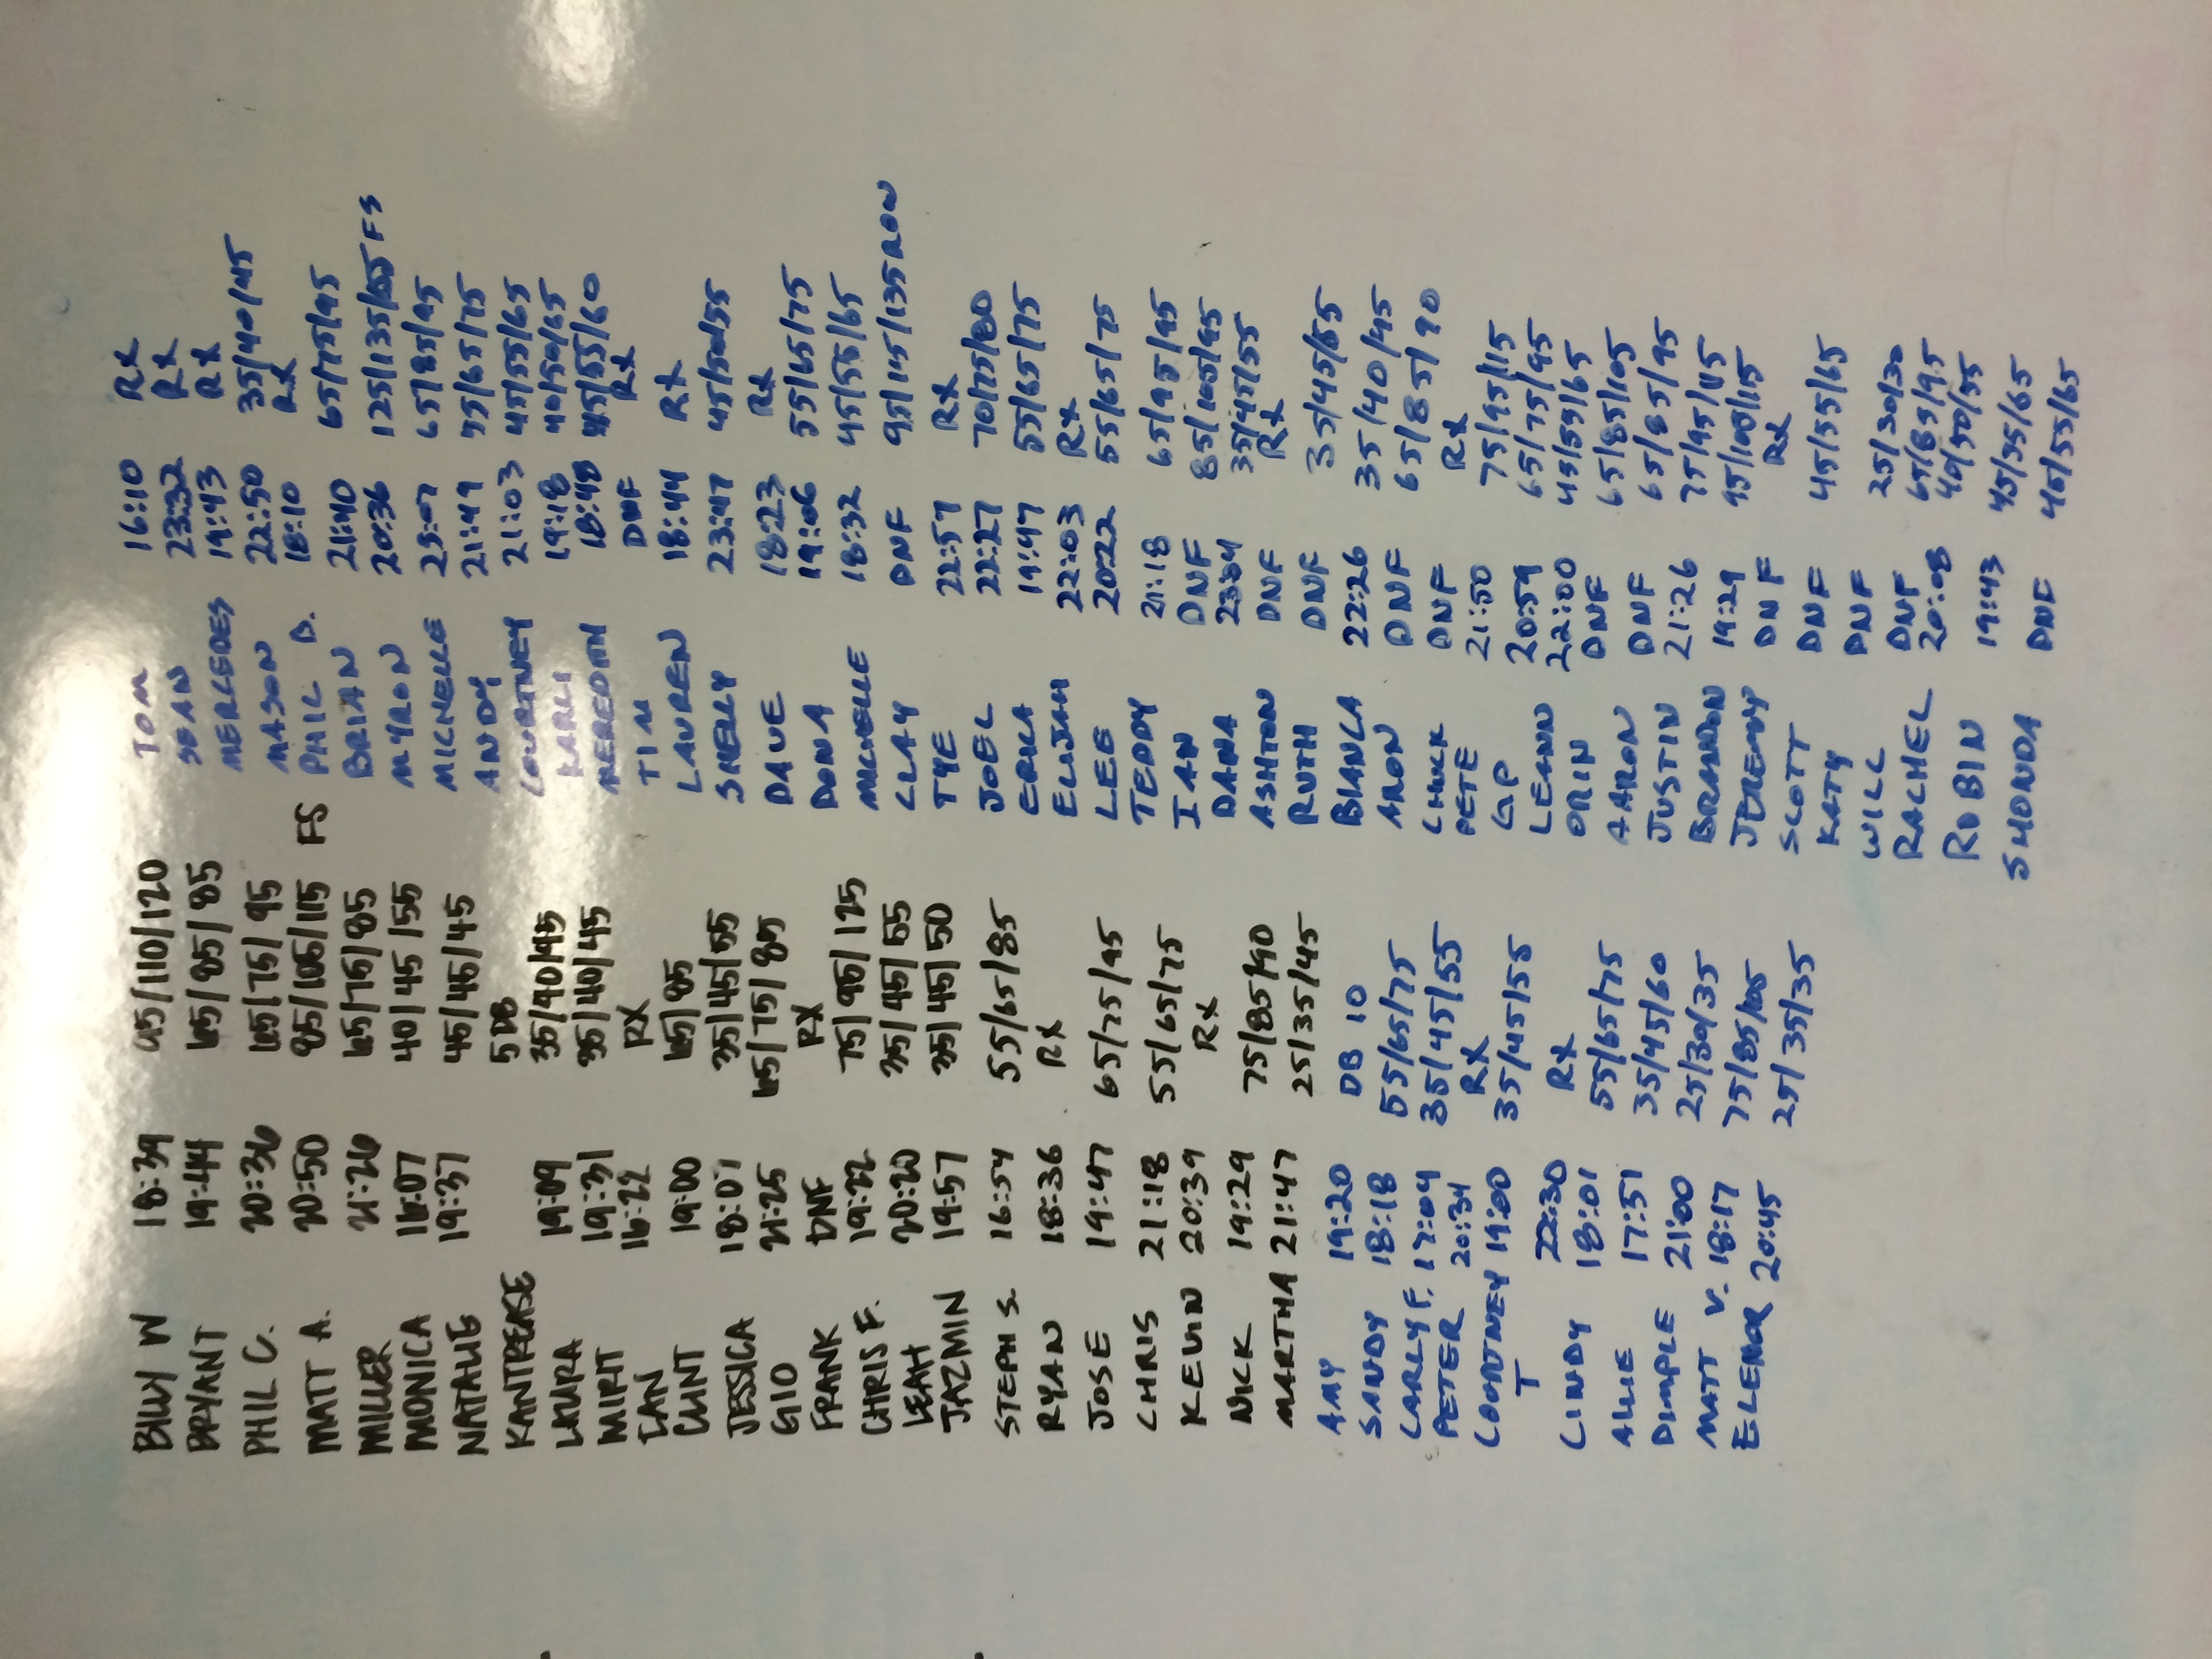 BILLY W 18:39 95/110/120
BRYANT 19:44 65/85/85
PHIL C. 20:36 65/75/95
MATT A. 20:50 95/105/115 FS
MILLER 21:26 65/75/85
MONICA 16:07 40/45/55
NATALIE 19:37 45/45/45
KANTREASE 5 DB
LAURA 19:09 35/40/45
MIRT 19:31 35/40/45
IAN 16:22 RX
CLINT 19:00 65/85
JESSICA 18:07 35/45/55
GIO 21:25 65/75/85
FRANK DNF RX
CHRIS F. 19:22 75/95/125
LEAH 20:20 35/45/55
JAZMIN 19:57 35/45/50
STEPH S. 16:54 55/65/85
RYAN 18:36 Rx
JOSE 19:47 65/75/95
CHRIS 21:18 55/65/75
KEVIN 20:39 Rx
NICK 19:29 75/85/90
MARTHA 21:47 25/35/45
AMY 19:20 DB 10
SANDY 18:18 55/65/75
CARLY F. 17:04 35/45/55
PETER 20:34 Rx
COURTNEY T 19:00 35/45/55
LINDY 22:30 Rx
ALLIE 18:01 55/65/75
DIMPLE 17:51 35/45/60
21:00 25/30/35
MATT V. 18:17 75/85/105
ELENOR 20:45 25/35/35
TOM 16:10 Rx
SEAN 23:32 Rx
MERCEDES 19:43 Rx
MASON 22:50 35/40/45
PHIL D. 18:10 Rx
BRIAN 21:40 65/75/95
MYRON 20:36 125/135/155 FS
MICHELLE 23:07 65/85/95
ANDY 21:49 55/65/75
COURTNEY 21:03 45/55/65
KARLI 19:18 40/50/65
MEREDITH 18:48 45/55/60
TIM DNF Rx
LAUREN 18:44 Rx
SHELLY 23:47 45/50/55
DAVE 18:23 Rx
DONA 19:06 55/65/75
MICHELLE 18:32 45/55/65
CLAY DNF 95/115/135 ROW
TYE 22:57 Rx
JOEL 22:27 70/75/80
ERICA 19:47 55/65/75
ELIJAH 22:03 Rx
LEE 20:22 55/65/75
TEDDY 21:18 65/95/95
IAN DNF 85/105/95
DANA 23:34 35/45/55
ASHTON DNF Rx
RUTH DNF 35/45/55
BIANCA 22:26 35/40/45
ARON DNF 65/85/90
CHUCK DNF Rx
PETE 21:50 75/95/115
GP 20:59 65/75/95
LEANN 22:00 45/55/65
ORIN DNF 65/85/105
AARON DNF 65/85/95
JUSTIN 21:26 75/95/115
BRANDON 19:29 95/100/115
JEREMY DNF Rx
SCOTT DNF 45/55/65
KATY DNF 25/30/30
WILL DNF 65/85/95
RACHEL 20:08 40/50/55
ROBIN 19:43 45/55/65
SHONDA DNF 45/55/65